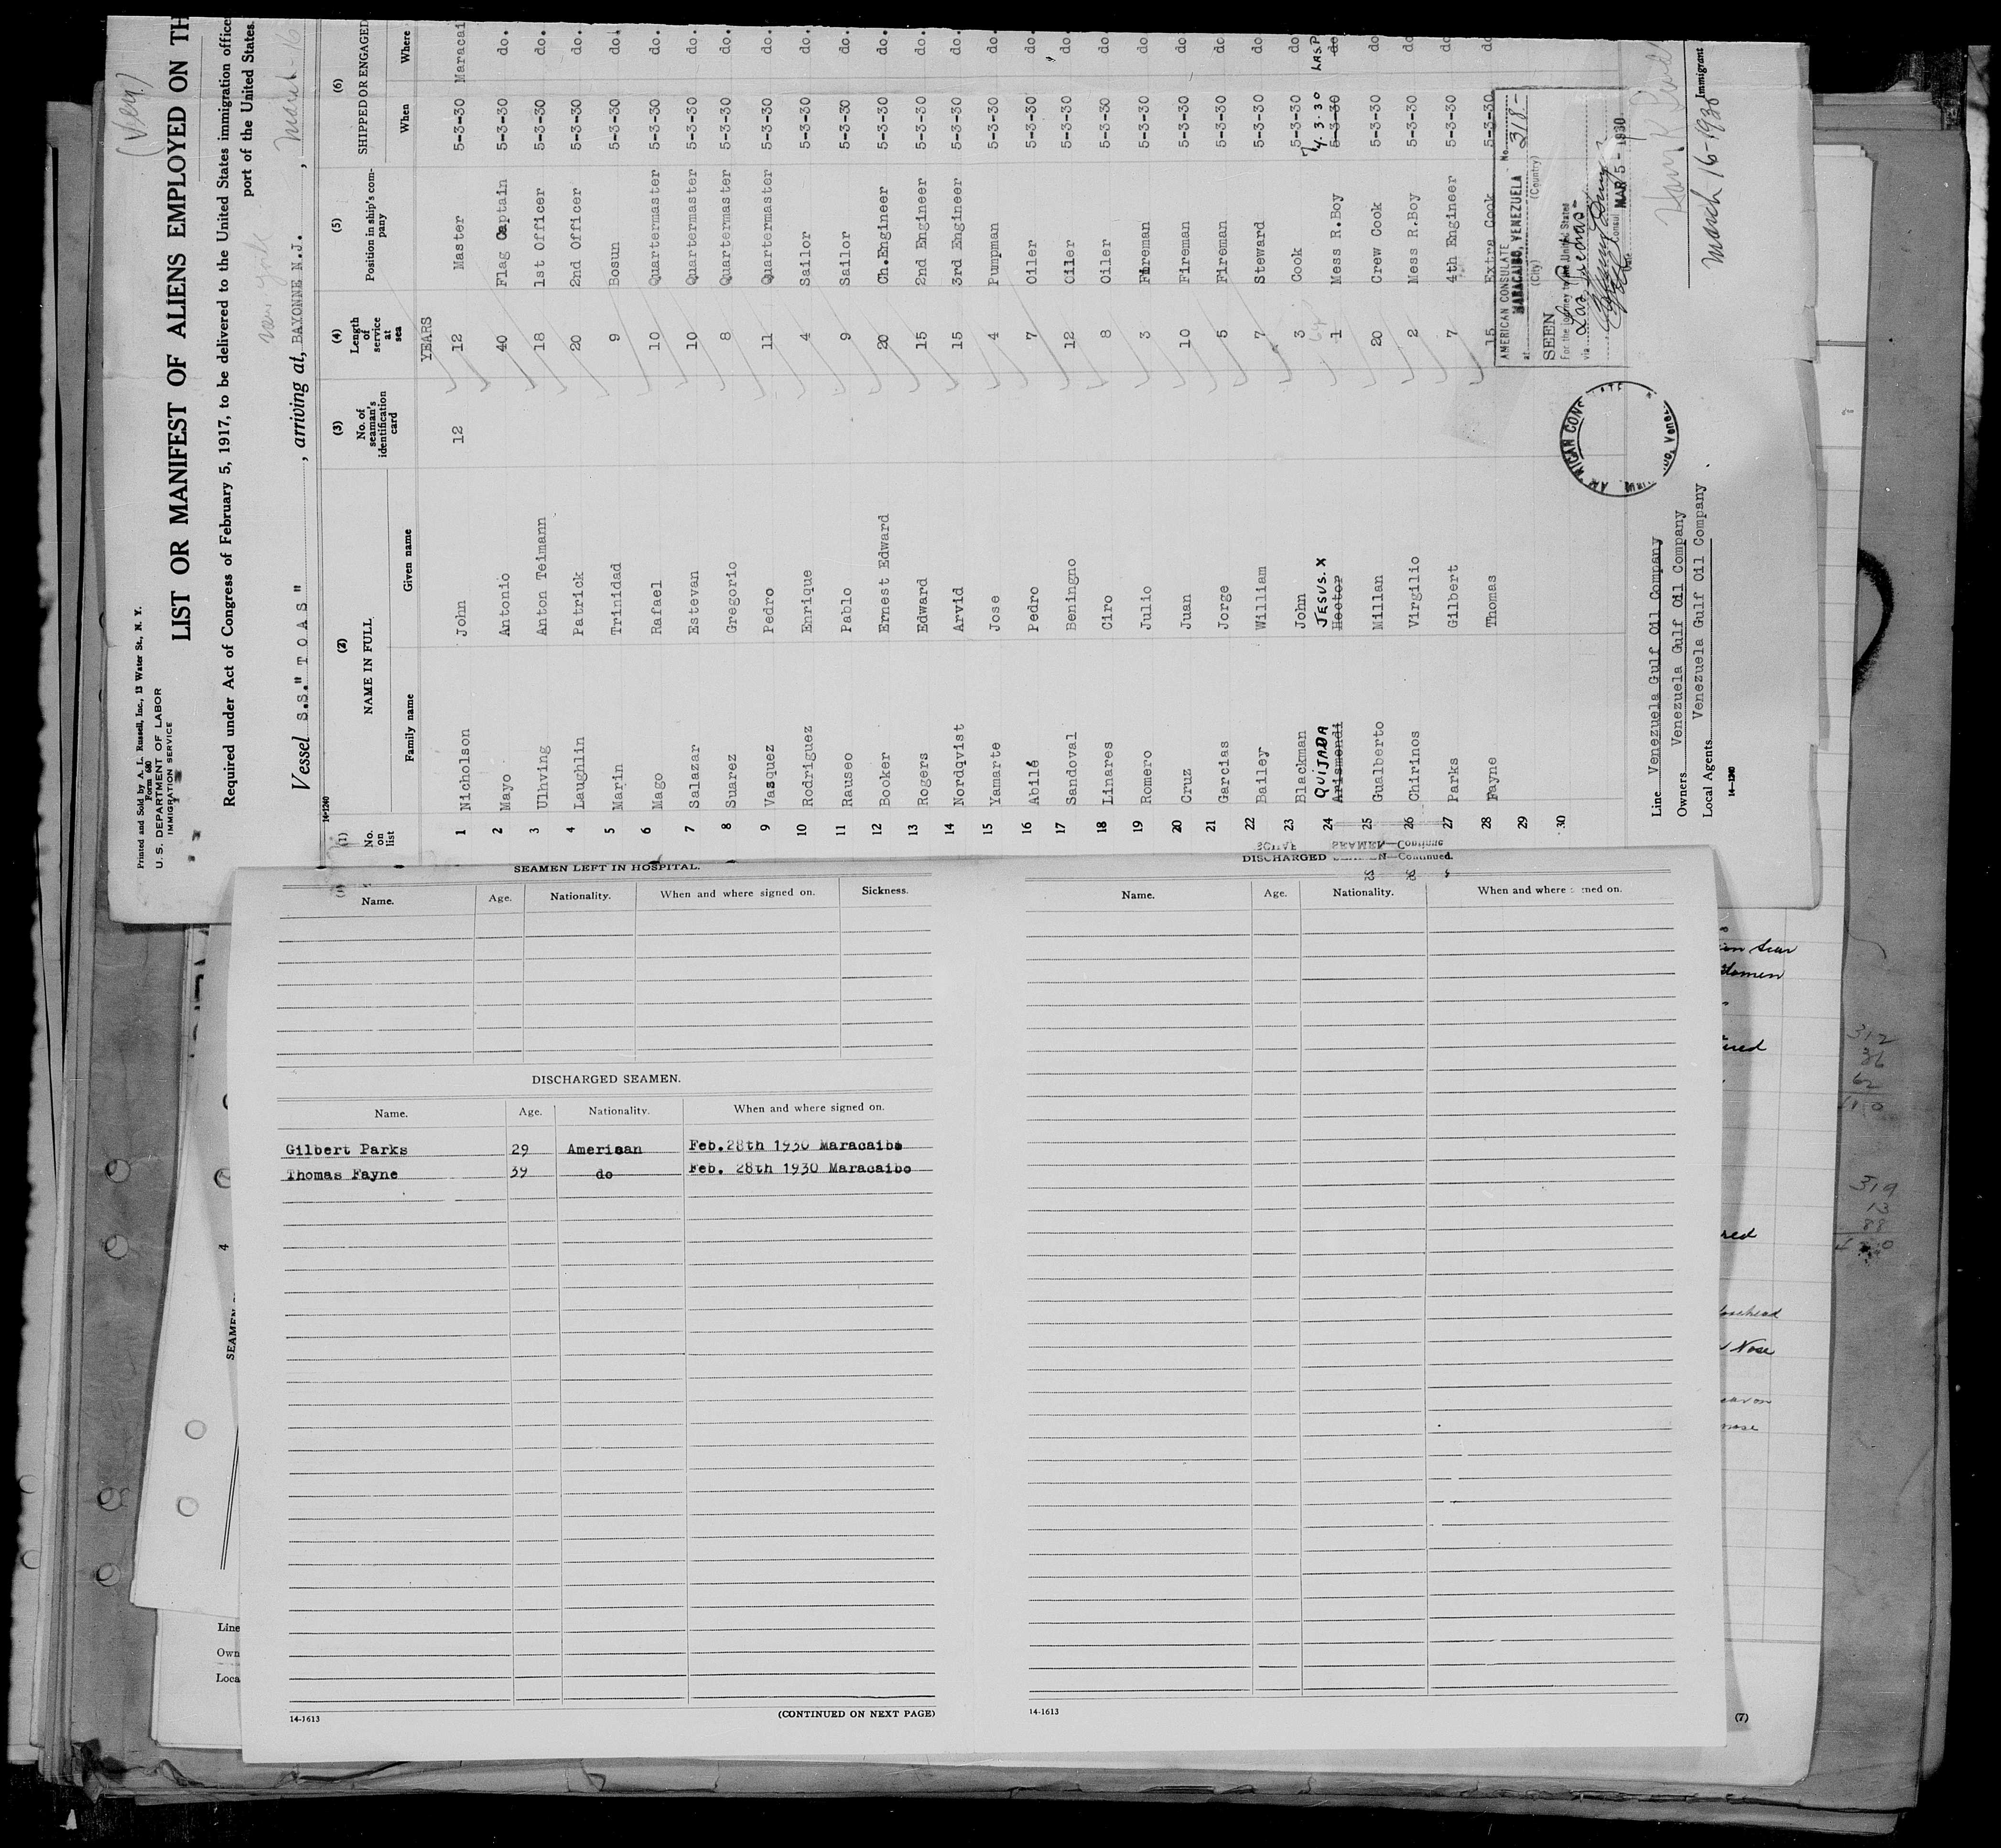 (Ven)
Printed and Sold by A. L. Russell, Inc., 13 Water St., N. Y.
Form 680
U. S. DEPARTMENT OF LABOR
IMMIGRATION SERVICE
LIST OR MANIFEST OF ALIENS EMPLOYED ON TH
Required under Act of Congress of February 5, 1917, to be delivered to the United States immigration office
port of the United States.
new york
Vessel S.S." T O A S " , arriving at, BAYONNE N.J. , March 16
14-1240
(1) (2) (3) (4) (5) (6)
No. on list NAME IN FULL No. of seaman's identification card Length of service at sea Position in ship's company SHIPPED OR ENGAGED
Family name Given name When Where
YEARS
1 Nicholson John 12 12 Master 5-3-30 Maracai
2 Mayo Antonio 40 Flag Captain 5-3-30 do.
3 Ulhving Anton Teimann 18 1st Officer 5-3-30 do.
4 Laughlin Patrick 20 2nd Officer 5-3-30 do.
5 Marin Trinidad 9 Bosun 5-3-30 do.
6 Mago Rafael 10 Quartermaster 5-3-30 do.
7 Salazar Estevan 10 Quartermaster 5-3-30 do.
8 Suarez Gregorio 8 Quartermaster 5-3-30 do.
9 Vasquez Pedro 11 Quartermaster 5-3-30 do.
10 Rodriguez Enrique 4 Sailor 5-3-30 do.
11 Rauseo Pablo 9 Sailor 5-3-30 do.
12 Booker Ernest Edward 20 Ch.Engineer 5-3-30 do.
13 Rogers Edward 15 2nd Engineer 5-3-30 do.
14 Nordqvist Arvid 15 3rd Engineer 5-3-30 do.
15 Yamarte Jose 4 Pumpman 5-3-30 do.
16 Abilé Pedro 7 Oiler 5-3-30 do.
17 Sandoval Beningno 12 Oiler 5-3-30 do.
18 Linares Ciro 8 Oiler 5-3-30 do
19 Romero Julio 3 Fireman 5-3-30 do
20 Cruz Juan 10 Fireman 5-3-30 do
21 Garcias Jorge 5 Fireman 5-3-30 do
22 Bailey William 7 Steward 5-3-30 do
23 Blackman John 3 Cook 5-3-30 do
QUIJADA JESUS. X 4.3.30 LAS.P
24 Arismendi Hector 1 Mess R.Boy 5-3-30 do
25 Gualberto Millan 20 Crew Cook 5-3-30 do
26 Chirinos Virgilio 2 Mess R.Boy 5-3-30 do
27 Parks Gilbert 7 4th Engineer 5-3-30 do
28 Fayne Thomas 15 Extra Cook 5-3-30 do
29
30
AMERICAN CONSULATE No. 318.-
at MARACAIBO, VENEZUELA
(City) (Country)
SEEN
For the journey to the United States
via Las Piedras-
Consul
Date MAR 5 - 1930
Line Venezuela Gulf Oil Company
Owners Venezuela Gulf Oil Company
Local Agents Venezuela Gulf Oil Company
14-1240
March 16-1930
Immigrant
SEAMEN LEFT IN HOSPITAL.
Name. Age. Nationality. When and where signed on. Sickness.
DISCHARGED SEAMEN.
Name. Age. Nationality. When and where signed on.
Gilbert Parks 29 American Feb.28th 1930 Maracaibo
Thomas Fayne 39 do Feb. 28th 1930 Maracaibo
14-1613 (CONTINUED ON NEXT PAGE)
DISCHARGED SEAMEN—Continued.
Name. Age. Nationality. When and where signed on.
14-1613
(7)
4
SEAMEN
Line
Own
Loca
Nose
312
36
62
319
13
88